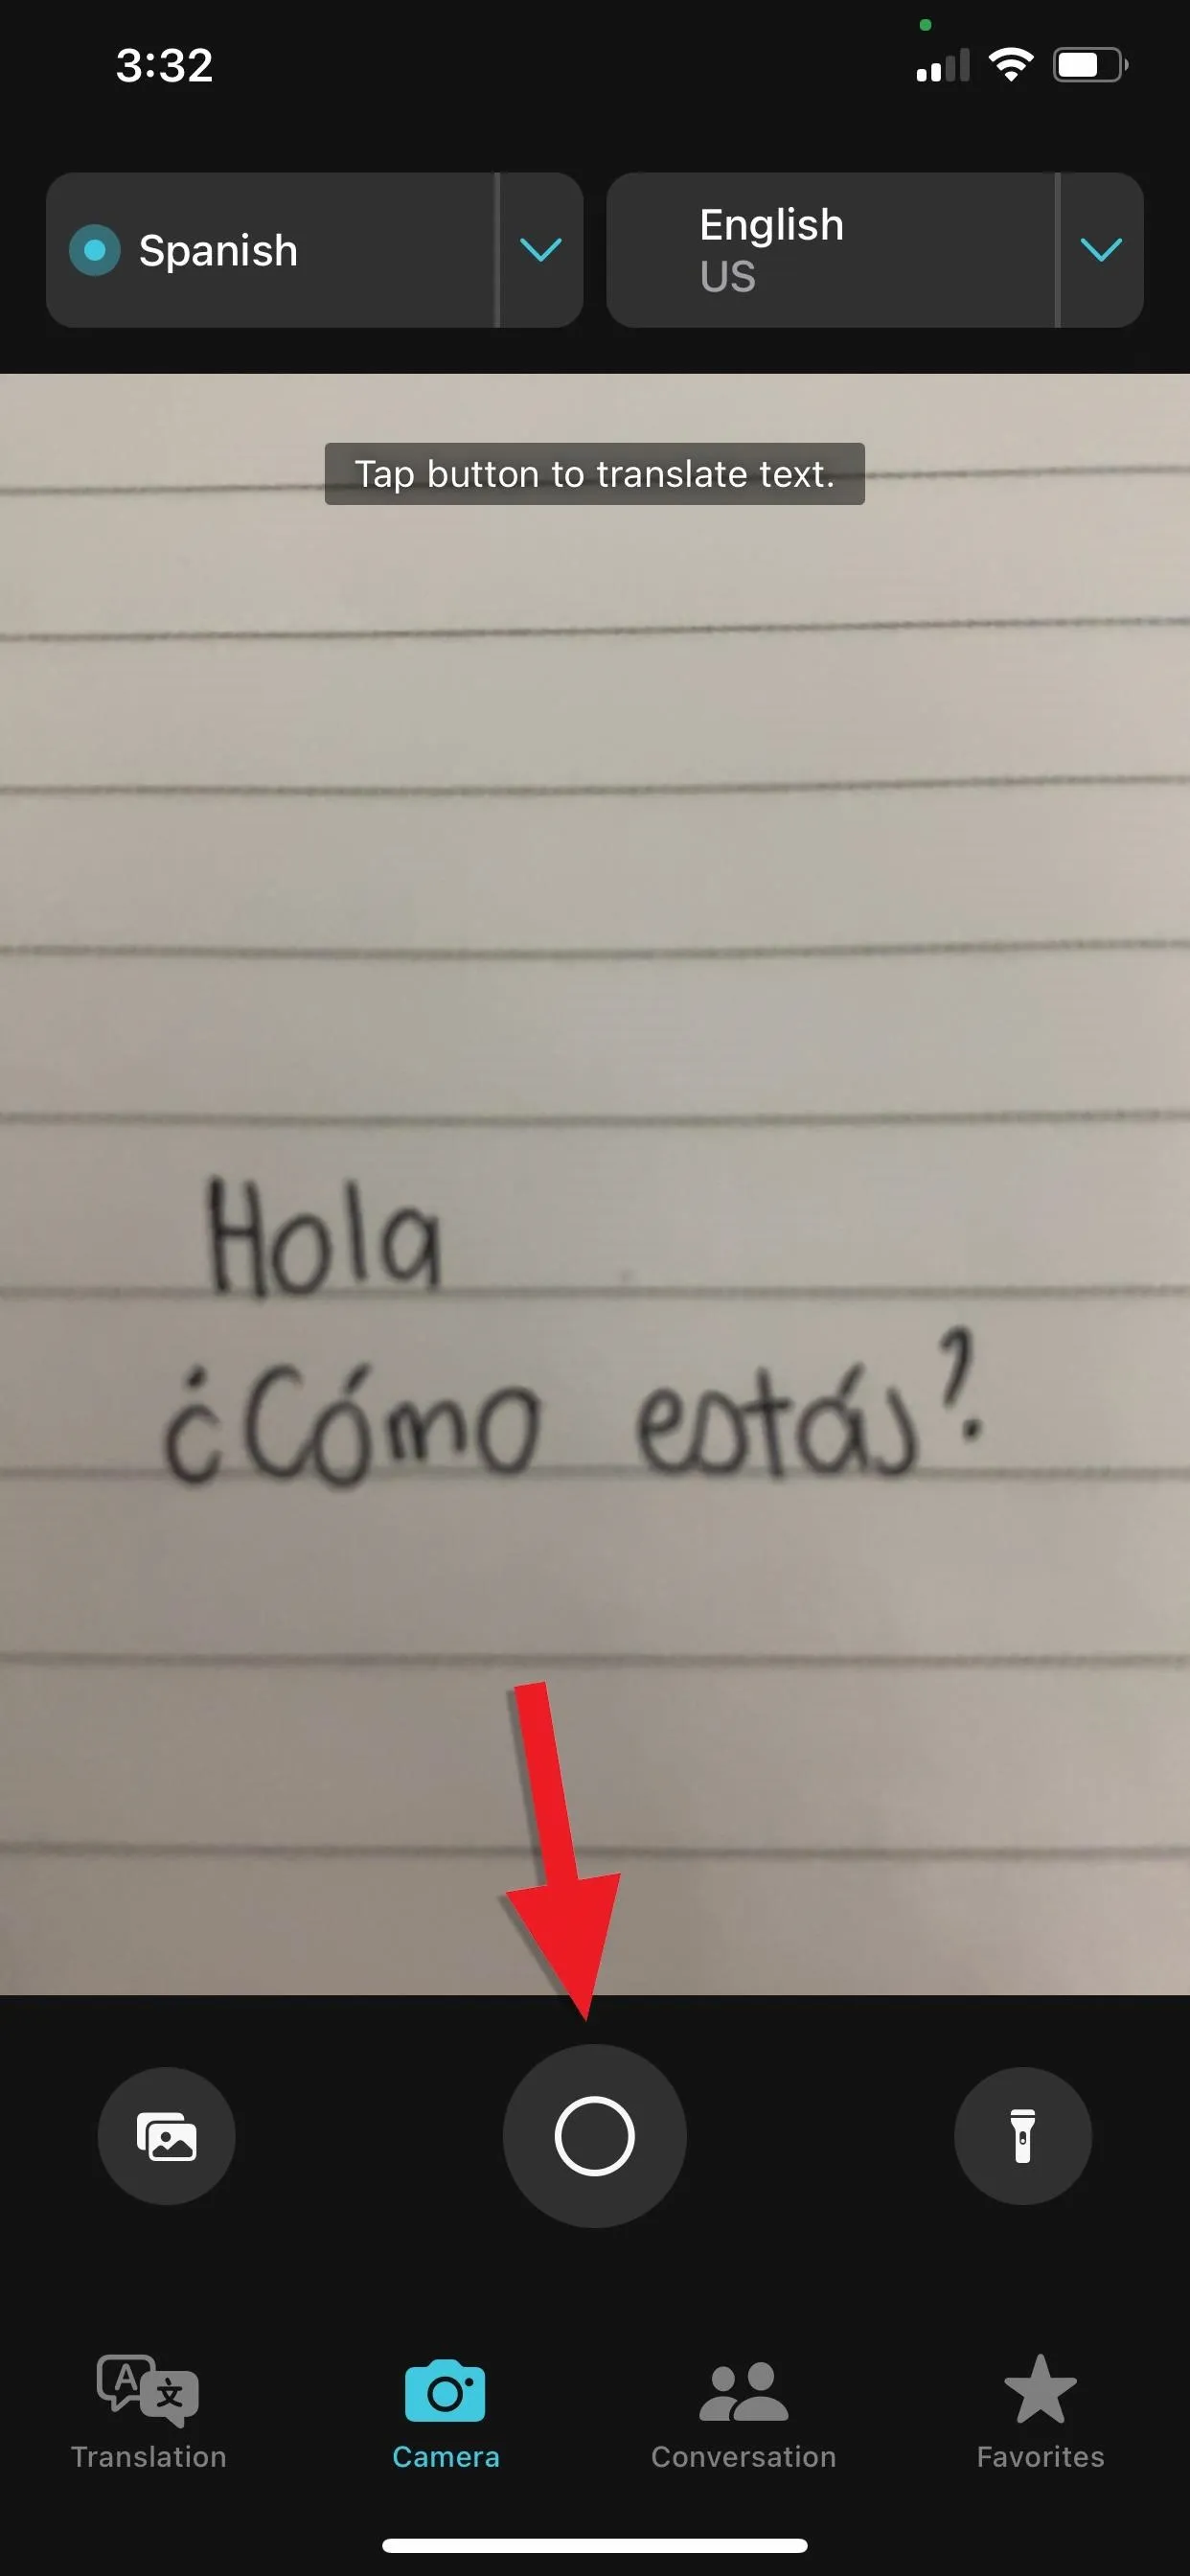 3:32
Spanish
English
US
Tap button to translate text.
Hola
¿Cómo estás?
Translation
Camera
Conversation
Favorites